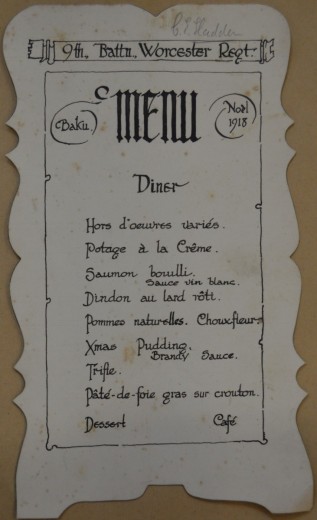 9th. Battn. Worcester Regt.
MENU
Baku.
Noël
1918
Diner
Hors d'oeuvres variés.
Potage à la Crême.
Saumon bouilli.
Sauce vin blanc.
Dindon au lard rôti.
Pommes naturelles. Chouxfleurs
Xmas Pudding.
Brandy Sauce.
Trifle.
Pâté-de-foie gras sur crouton.
Dessert Café